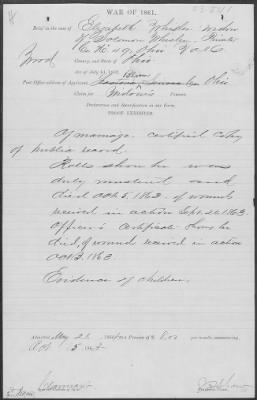 WAR OF 1861.
Brief in the case of Elizabeth Wheeler widow
of Solomon Wheeler Private
Co. K 49 Ohio Vols
Wood County, and State of Ohio
Act of July 14, 1862.
Post Office address of Applicant, Ohio
Claim for Widow's Pension.
Declaration and Identification in due Form.
PROOF EXHIBITED.
Of marriage. certified copy
of public record.
Rolls show he was
duly mustered and
died Oct 5. 1863. of wounds
received in action Sept. 20. 1863.
Officer's certificate shows he
died, of wounds received in action
Oct 3. 1863.
Evidence of children.
Admitted May 26 to a Pension of $ 8.00 per month, commencing
Oct 5 1863